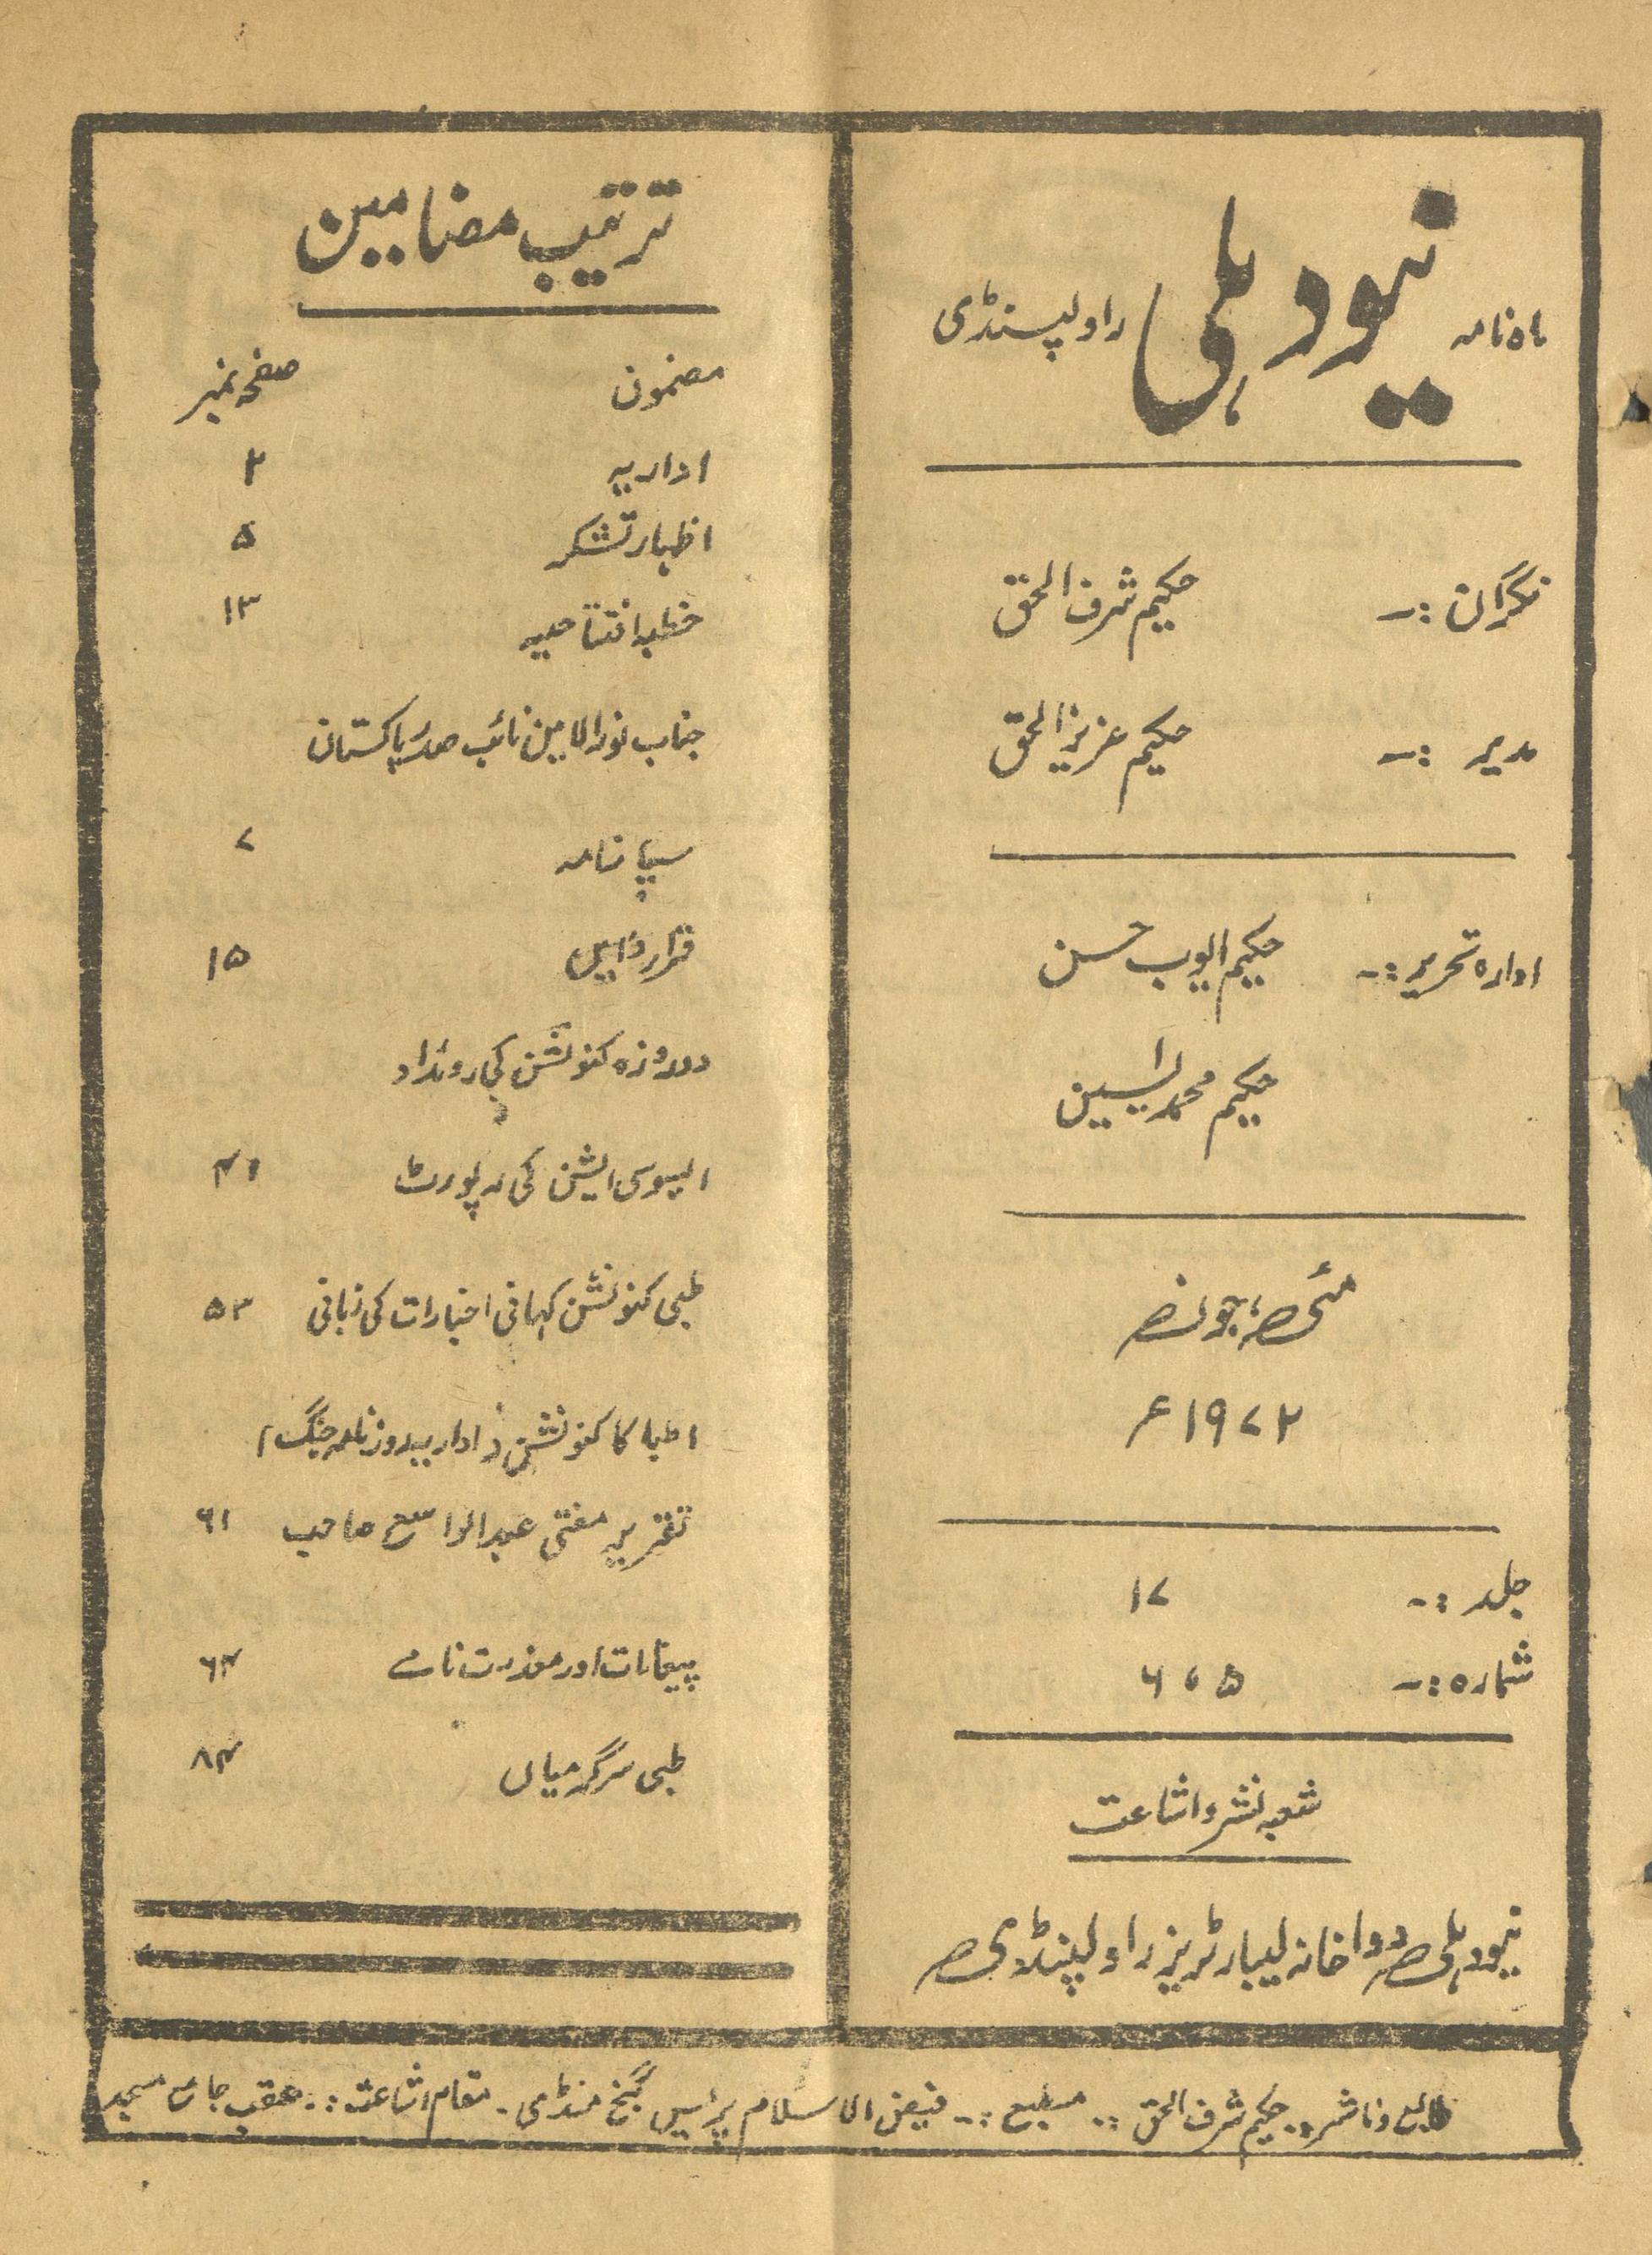 ماہ نامہ نیو دہلی راولپنڈی
نگران :۔ حکیم شرف الحق
مدیر :۔ حکیم عزیز الحق
ادارہ تحریر :۔ حکیم ایوب حسن
حکیم محمد یٰسین
مئی، جون
۱۹۷۲ ء
جلد :۔ ۱۷
شمارہ :۔ ۵ ، ۶
شعبہ نشر و اشاعت
نیو دہلی دواخانہ لیبارٹریز راولپنڈی
ترتیب مضامین
مضمون صفحہ نمبر
اداریہ ۲
اظہار تشکر ۵
خطبہ افتتاحیہ ۱۳
جناب نور الامین نائب صدر پاکستان
سپاپ نامہ ۷
قراردادیں ۱۵
دو روزہ کنونشن کی روئداد
ایسوسی ایشن کی رپورٹ ۴۱
طبی کنونشن کہانی اخبارات کی زبانی ۵۳
اطباء کا کنونشن (اداریہ روزنامہ جنگ)
تقریر مفتی عبدالواسع صاحب ۶۱
پیغامات اور معذرت نامے ۶۴
طبی سرگرمیاں ۸۴
طابع و ناشر :۔ حکیم شرف الحق :۔ مطبع :۔ فیض الاسلام پریس گنج منڈی ۔ مقام اشاعت :۔ عقب جامع مسجد